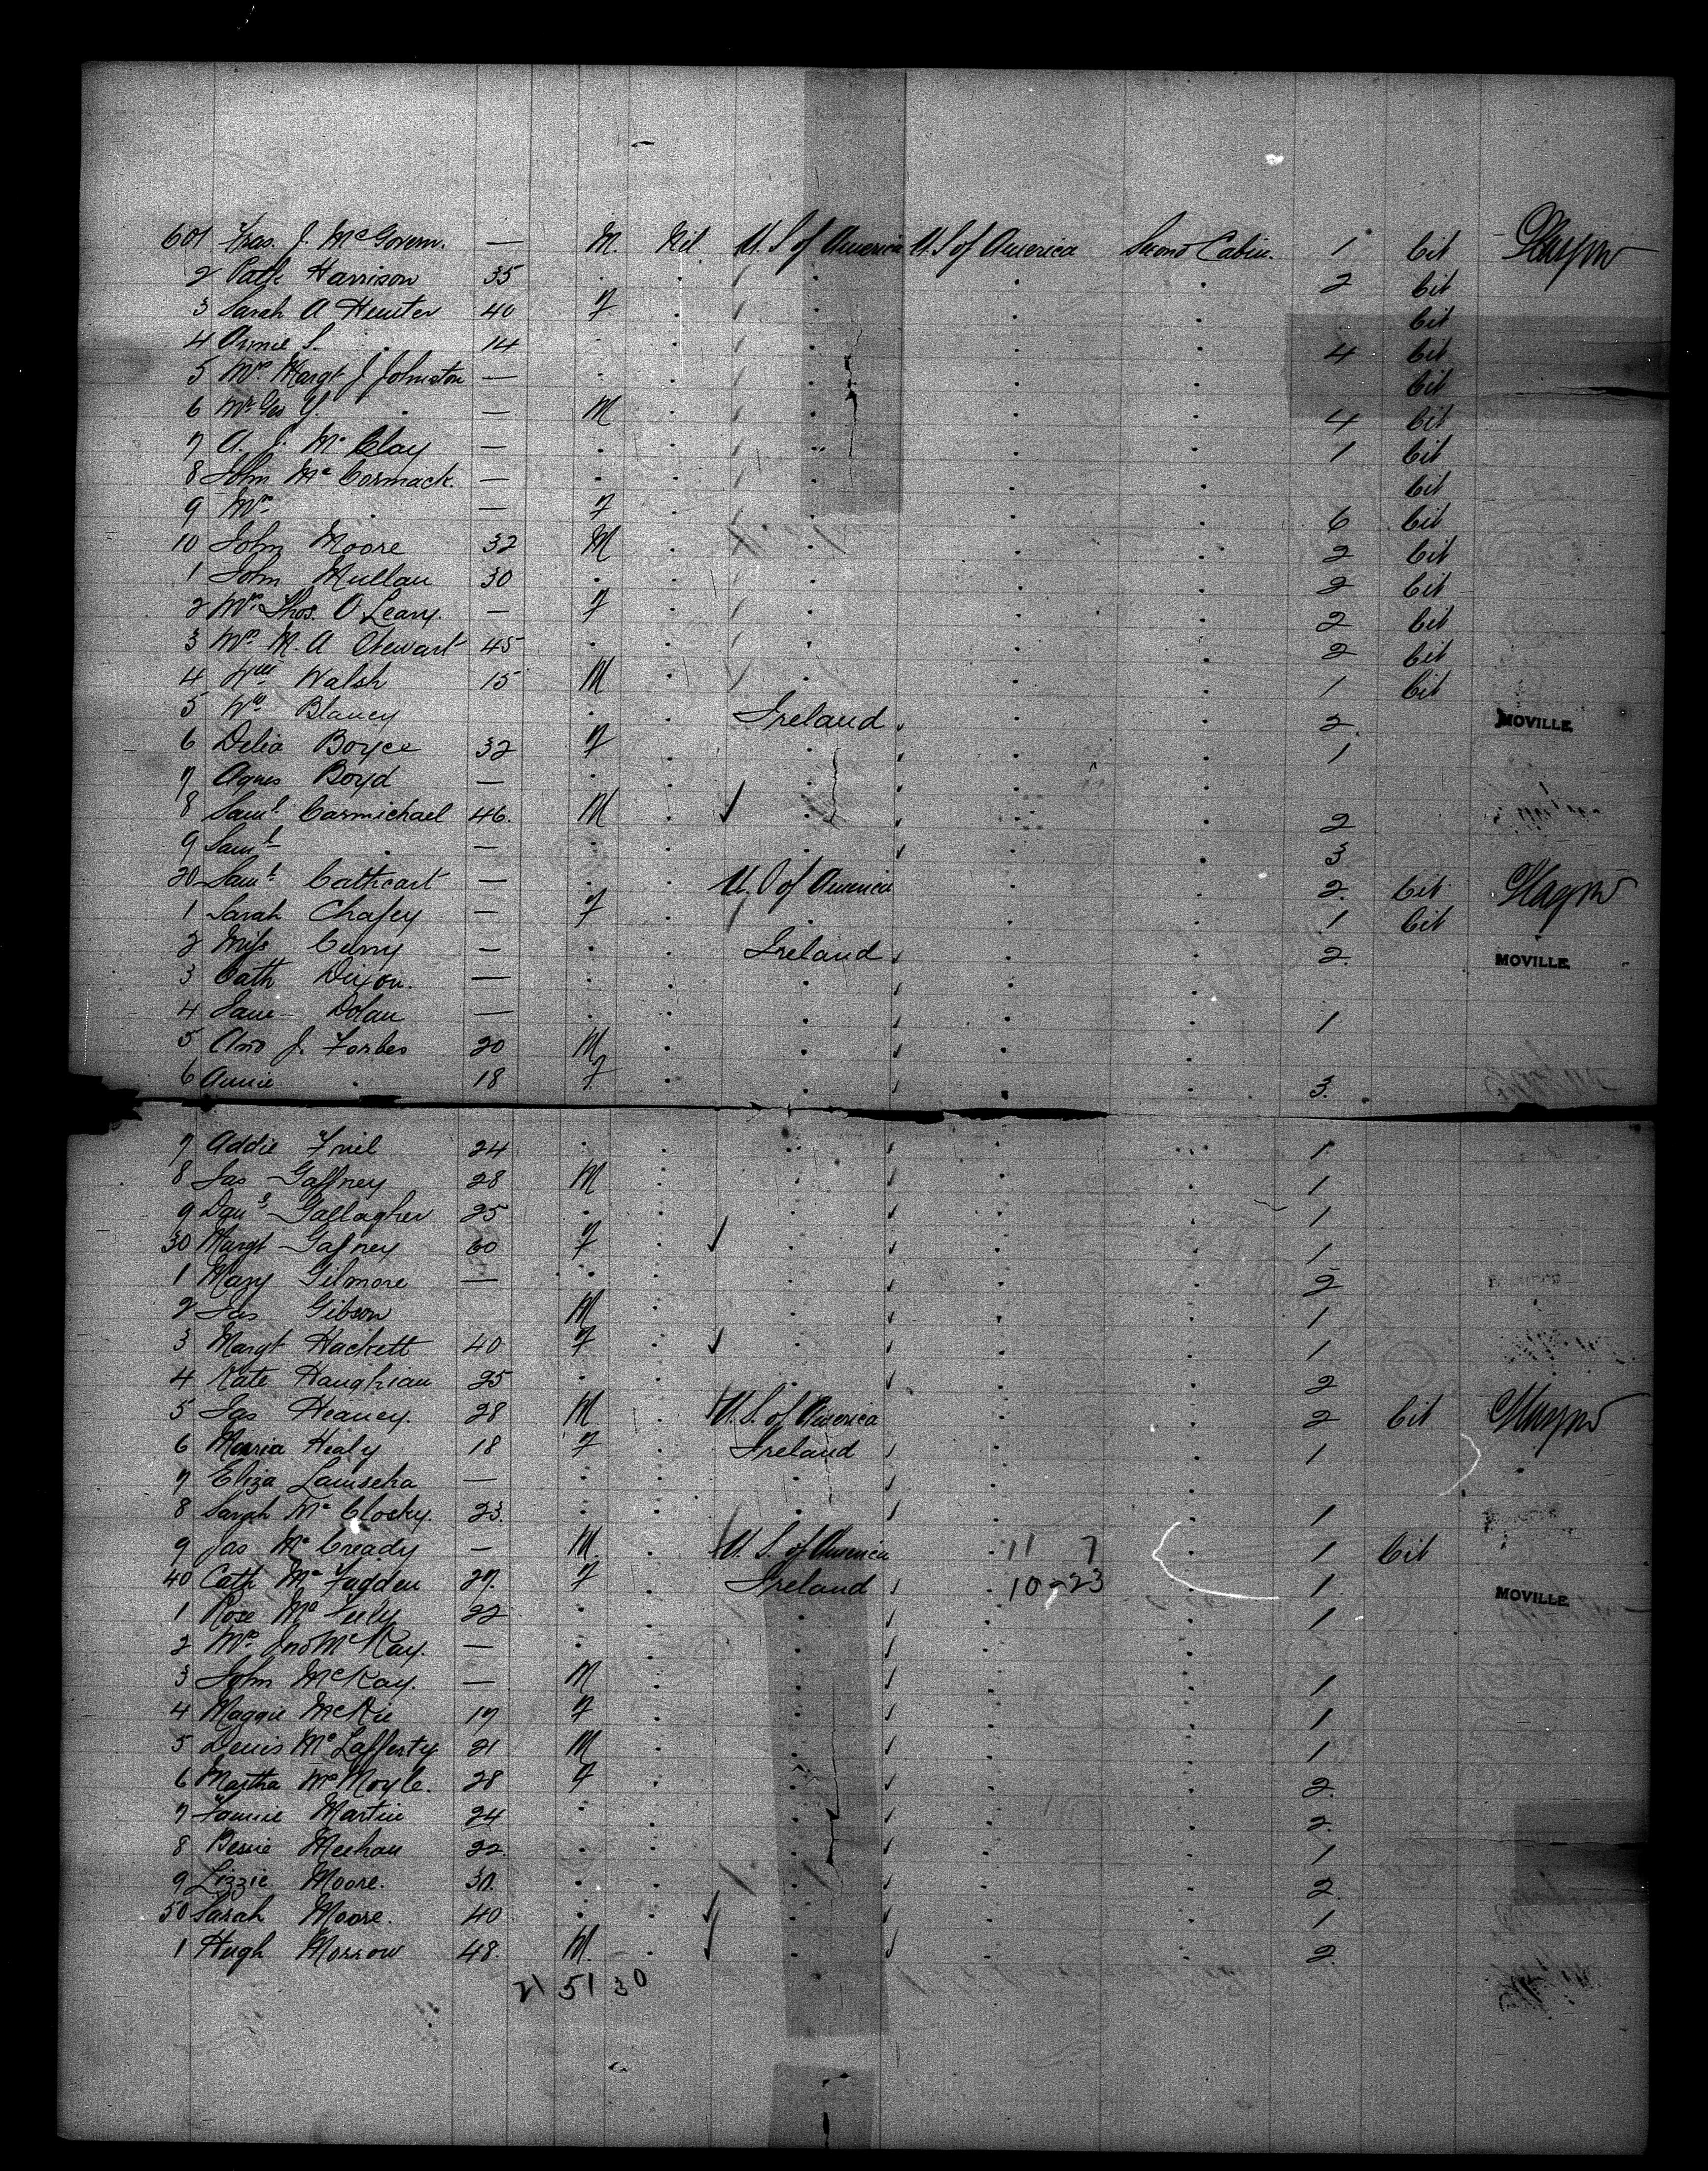 601 Fras. J. McGovern. — M. Nil U.S of America U.S of America Second Cabin. 1 Cit Glasgow
2 Patk Harrison 35 . . . . . 2 Cit
3 Sarah A Hunter 40 F . . . . Cit
4 Annie S. . 14 . . . . . 4 Cit
5 Mrs Margt J Johnston — . . . . . Cit
6 Mr Geo Y. . — M . . . . 4 Cit
7 A. J. Mc Clay — . . . . . 1 Cit
8 John Mc Cormack. — . . . . . Cit
9 Mrs . — F . . . . 6 Cit
10 John Moore 32 M . . . . 2 Cit
1 John Mullan 30 . . . . . 2 Cit
2 Mrs Thos. O Leary. — F . . . . 2 Cit
3 Mrs M. A Stewart 45 . . . . . 2 Cit
4 Wm Walsh 15 M . . . . 1 Cit
5 Wm Blaney . . Ireland . . 2 MOVILLE.
6 Delia Boyce 32 F . . . . 1
7 Agnes Boyd — . . . . .
8 Saml Carmichael 46. M . . . . 2
9 Saml . — . . . . . 3
20 Saml Cathcart — . . U. S of America . . 2. Cit Glasgow
1 Sarah Chafey — F . . . . 1 Cit
2 Miss Curry — . . Ireland . . 2. MOVILLE.
3 Cath Dixon. — . . . . .
4 Jane Dolan — . . . . . 1
5 And J. Forbes 20 M . . . .
6 Annie . 18 F . . . . 3.
7 Addie Friel 24 . . . . . 1
8 Jas Gaffney 28 M . . . . 1
9 Danl Gallagher 25 . . . . . 1
30 Margt Gafney 60 F . . . . 1
1 Mary Gilmore — . . . . . 2
2 Jas Gibson M . . . . 1
3 Margt Hackett 40 F . . . . 1
4 Kate Haughian 25 . . . . . 2
5 Jas Heaney. 28 M . U. S. of America . . 2 Cit Glasgow
6 Maria Healy 18 F . Ireland . . 1
7 Eliza — . . . . .
8 Sarah Mc Closky. 23. . . . . . 1
9 Jas Mc Cready — M. . U. S. of America . 11 7 . 1 Cit
40 Cath Mc Fadden 27. F . Ireland . 10-23 . 1. MOVILLE.
1 Rose Mc Feely 22 . . . . . 1
2 Mrs Jno McKay. — . . . . .
3 John McKay. — M . . . . 1
4 Maggie McKie 17 F . . . . 1
5 Denis Mc Lafferty 21 M . . . . 1
6 Martha Mc Moyle. 28 F . . . . 2.
7 Fannie Martin 24 . . . . . 2.
8 Bessie Meehan 22. . . . . . 1
9 Lizzie Moore. 30. . . . . . 2.
50 Sarah Moore. 40 . . . . . 1
1 Hugh Morrow 48. M. . . . . 2.
21 51 30